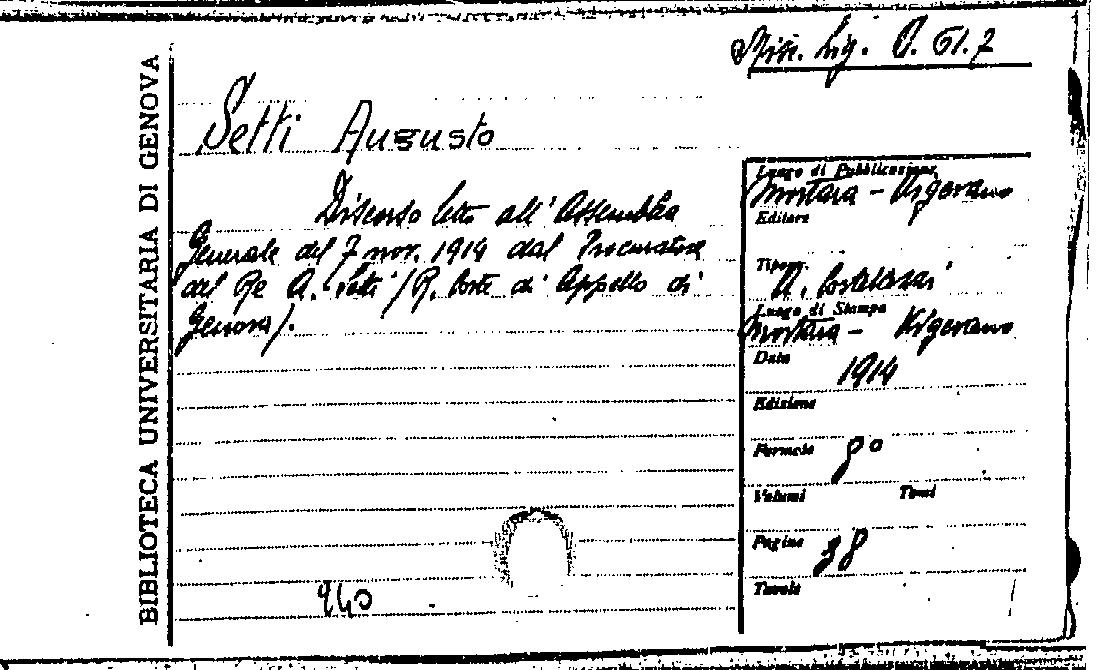 Misc. Lig. O. 61.7
BIBLIOTECA UNIVERSITARIA DI GENOVA
Setti Augusto
Discorso letto all'Assemblea
Generale del 7 nov. 1914 dal Procuratore
del Re A. Setti (R. Corte di Appello di
Genova).
240
Luogo di Pubblicazione
Mortara - Vigevano
Editore
Tipogr.
A. Cortellezzi
Luogo di Stampa
Mortara - Vigevano
Data
1914
Edizione
Formato 8°
Volumi Tomi
Pagine 38
Tavole